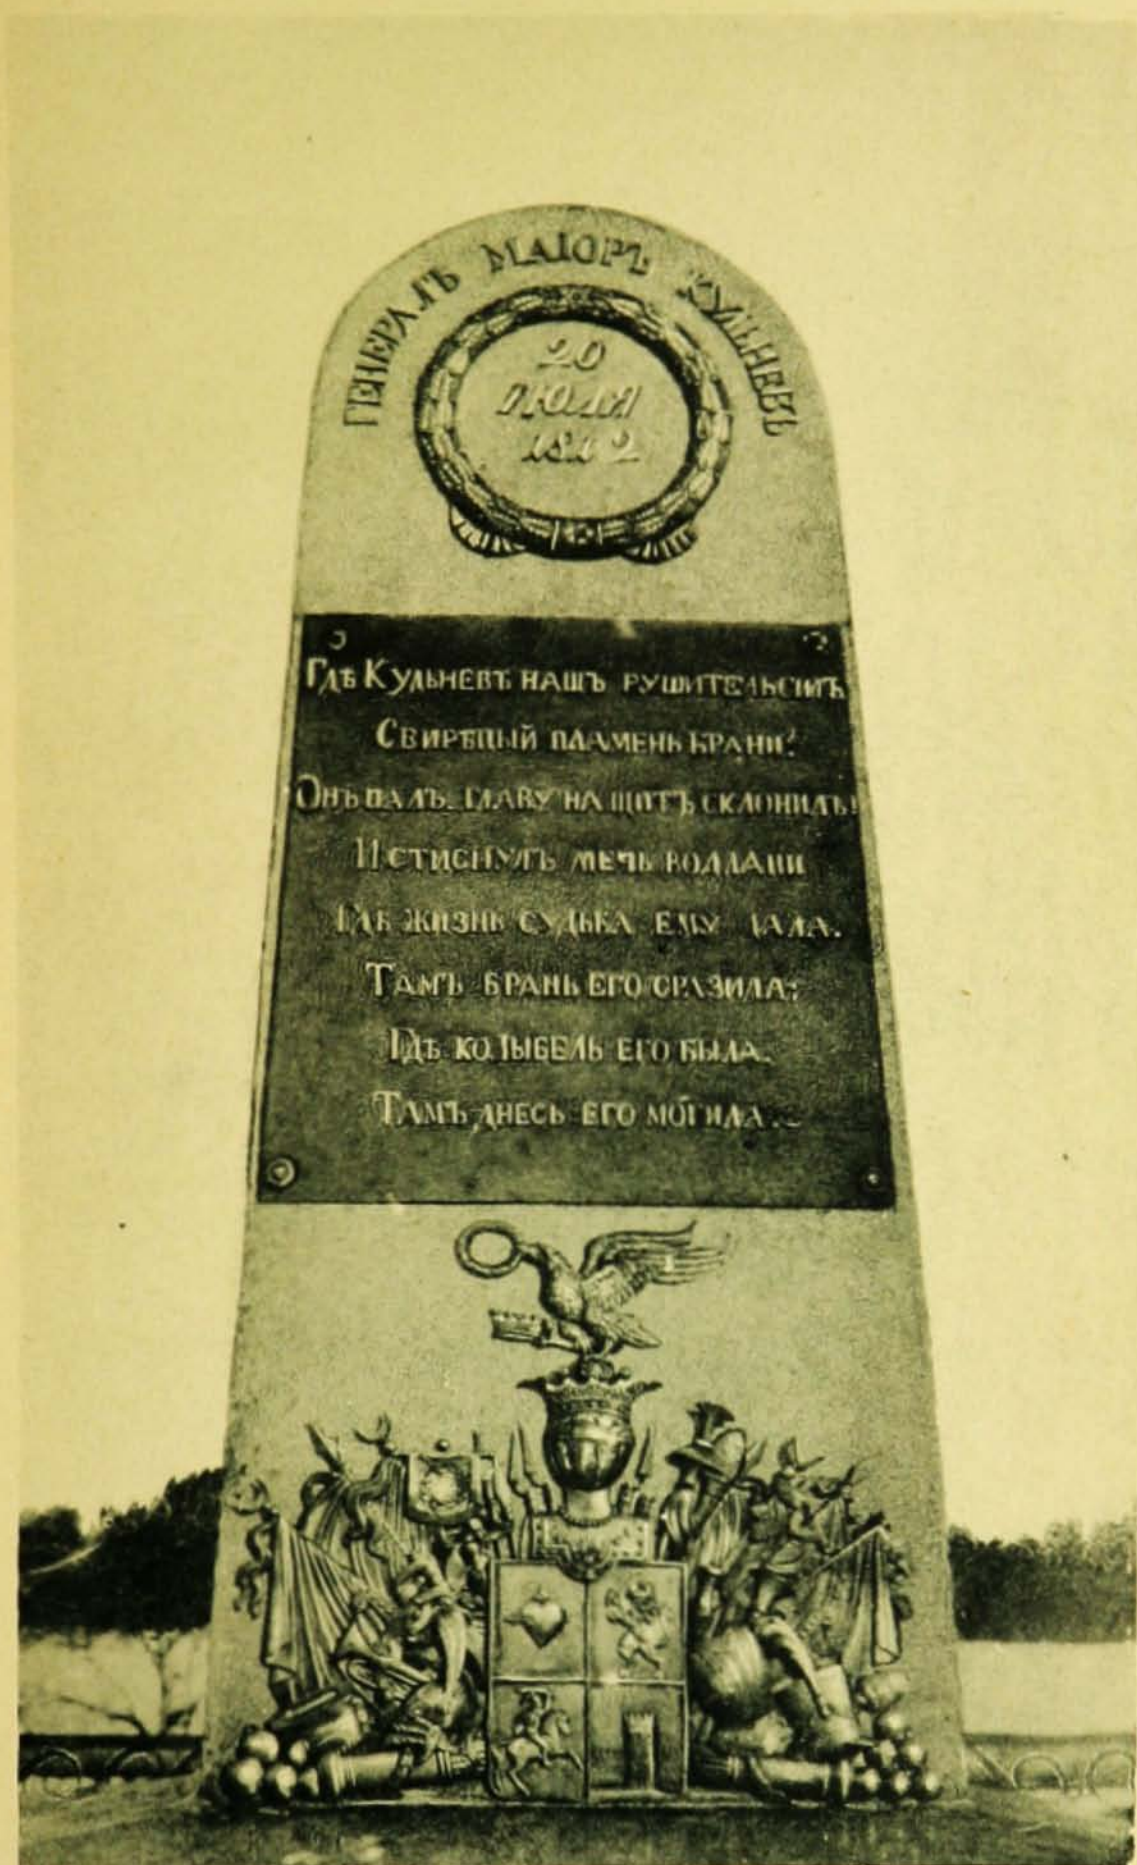 ГЕНЕРАЛЪ МАІОРЪ КУЛЬНЕВЪ
20
ІЮЛЯ
1812
ГДѢ КУЛЬНЕВЪ НАШЪ РУШИТЕЛЬ СИЛЪ
СВИРѢПЫЙ ПЛАМЕНЬ БРАНИ?
ОНЪ ПАЛЪ. ГЛАВУ НА ЩИТЪ СКЛОНИЛЪ!
И СТИСНУЛЪ МЕЧЬ ВО ДЛАНИ
ГДѢ ЖИЗНЬ СУДЬБА ЕМУ ДАЛА.
ТАМЪ БРАНЬ ЕГО СРАЗИЛА;
ГДѢ КОЛЫБЕЛЬ ЕГО БЫЛА.
ТАМЪ ДНЕСЬ ЕГО МОГИЛА.